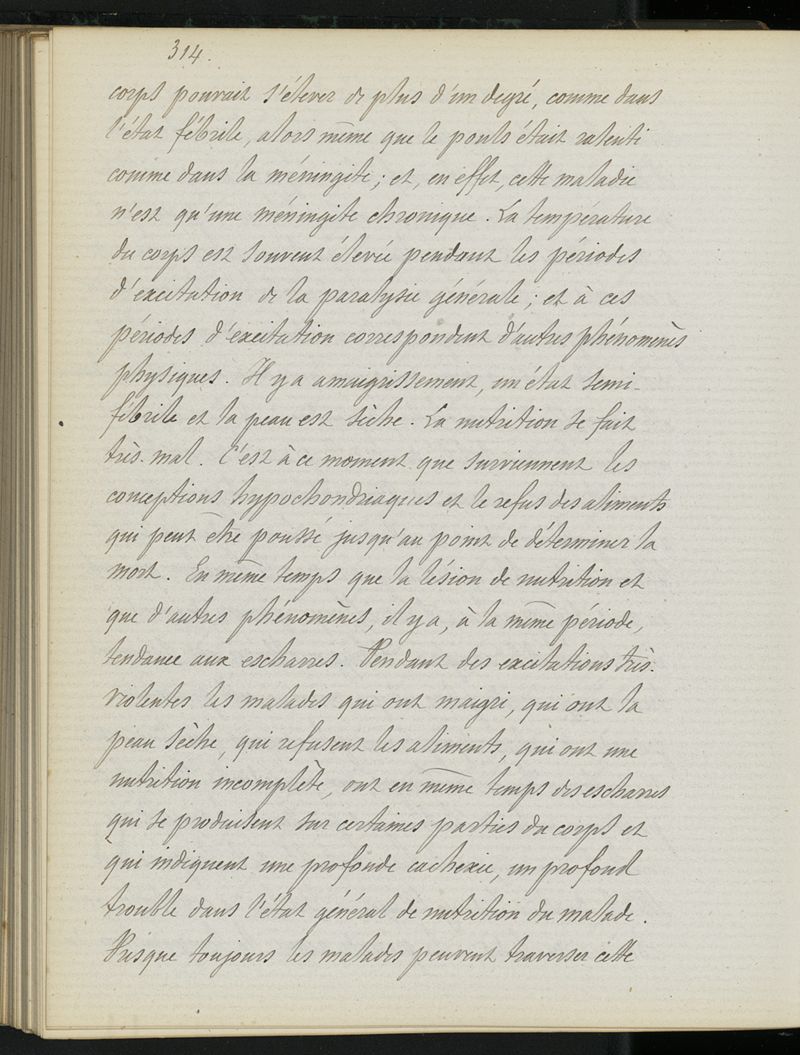 314.
corps pouvait s'élever de plus d'un degré, comme dans
l'état fébrile, alors même que le pouls était ralenti
comme dans la méningite; et, en effet, cette maladie
n'est qu'une méningite chronique. La température
du corps est souvent élevée pendant les périodes
d'excitation de la paralysie générale; et à ces
périodes d'excitation correspondent d'autres phénomènes
physiques. Il y a amaigrissement, un état semi-
fébrile et la peau est sèche. La nutrition se fait
très-mal. C'est à ce moment que surviennent les
conceptions hypochondriaques et le refus des aliments
qui peut être poussé jusqu'au point de déterminer la
mort. En même temps que la lésion de nutrition et
que d'autres phénomènes, il y a, à la même période,
tendance aux escharres. Pendant des excitations très-
violentes les malades qui ont maigri, qui ont la
peau sèche, qui refusent les aliments, qui ont une
nutrition incomplète, ont en même temps des escharres
qui se produisent sur certaines parties du corps et
qui indiquent une profonde cachexie, un profond
trouble dans l'état général de nutrition du malade.
Presque toujours les malades peuvent traverser cette